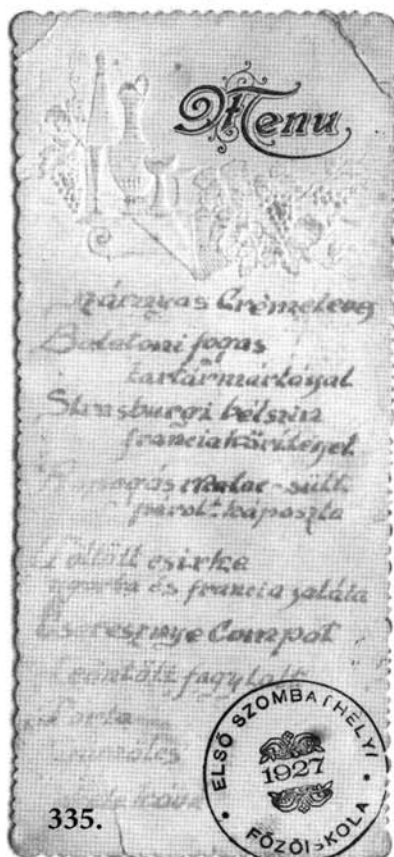 Menu
Szárnyas Crémeleves
Balatoni fogas
tartármártásal
Strasburgi bélszin
francia körítéssel
Ropogós malac-sült
párolt káposzta
Töltött csirke
ugorka és francia saláta
Cseresznye Compot
fagylalt
Torta
Gyümölcs
kávé
335.
ELSŐ SZOMBATHELYI
1927
FŐZŐISKOLA